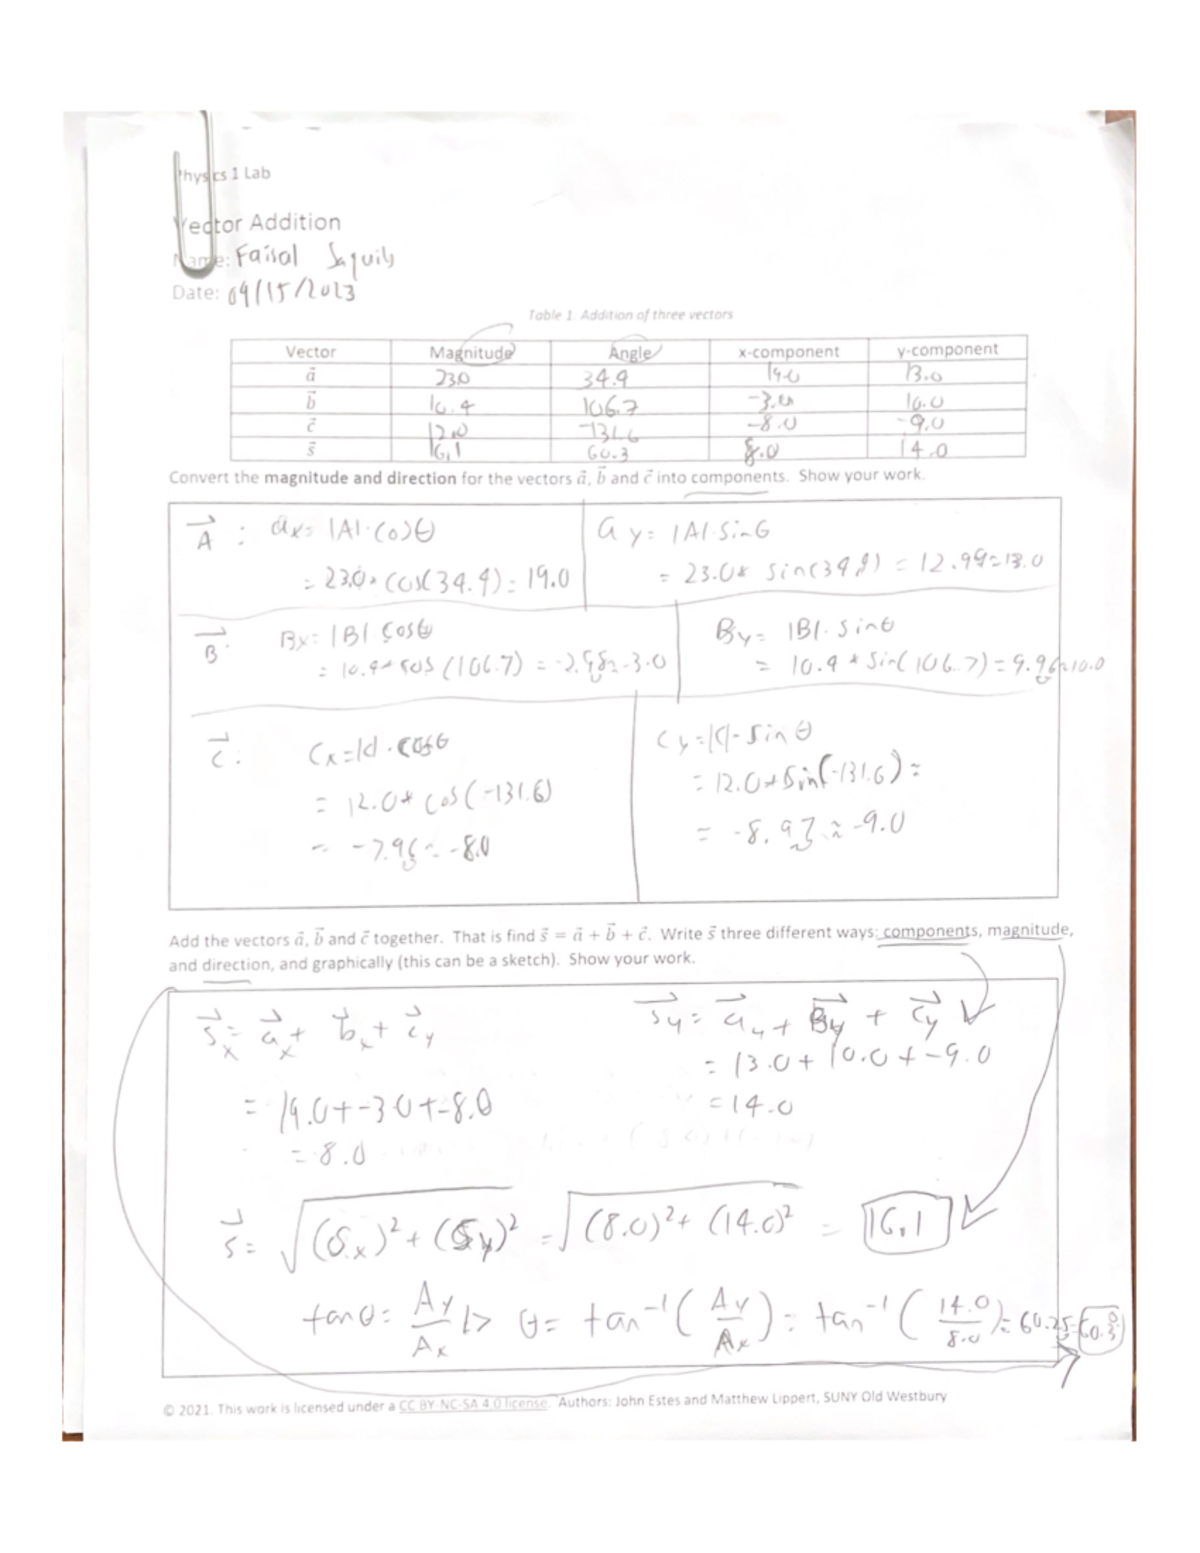 Physics 1 Lab
Vector Addition
Name: Faisal Saquib
Date: 09/15/2023
Table 1. Addition of three vectors
Vector Magnitude Angle x-component y-component
a⃗ 23.0 34.4 19.0 13.0
b⃗ 10.4 106.7 -3.0 10.0
c⃗ 12.0 -131.6 -8.0 -9.0
s⃗ 16.1 60.3 8.0 14.0
Convert the magnitude and direction for the vectors a⃗, b⃗ and c⃗ into components. Show your work.
A⃗ : ax= |A|·cosθ
= 23.0* cos(34.4) = 19.0
ay= |A|·sinθ
= 23.0* sin(34.4) = 12.99≈13.0
B⃗: Bx= |B|·cosθ
= 10.4* cos(106.7) = -2.98≈-3.0
By= |B|·sinθ
= 10.4* sin(106.7) = 9.96≈10.0
C⃗: Cx=|c|·cosθ
= 12.0* cos(-131.6)
= -7.96≈-8.0
Cy=|c|·sinθ
= 12.0*sin(-131.6) =
= -8.97≈-9.0
Add the vectors a⃗, b⃗ and c⃗ together. That is find s⃗ = a⃗ + b⃗ + c⃗. Write s⃗ three different ways: components, magnitude,
and direction, and graphically (this can be a sketch). Show your work.
s⃗x= a⃗x+ b⃗x+ c⃗y
= 19.0+-3.0+-8.0
= 8.0
s⃗y= a⃗y+ B⃗y + c⃗y
= 13.0+10.0+-9.0
=14.0
s⃗= √(Sx)²+(Sy)² = √(8.0)²+(14.0)² = 16.1
tanθ= Ay/Ax |> θ= tan⁻¹(Ay/Ax)= tan⁻¹(14.0/8.0)= 60.25=60.3°
© 2021. This work is licensed under a CC BY-NC-SA 4.0 license. Authors: John Estes and Matthew Lippert, SUNY Old Westbury